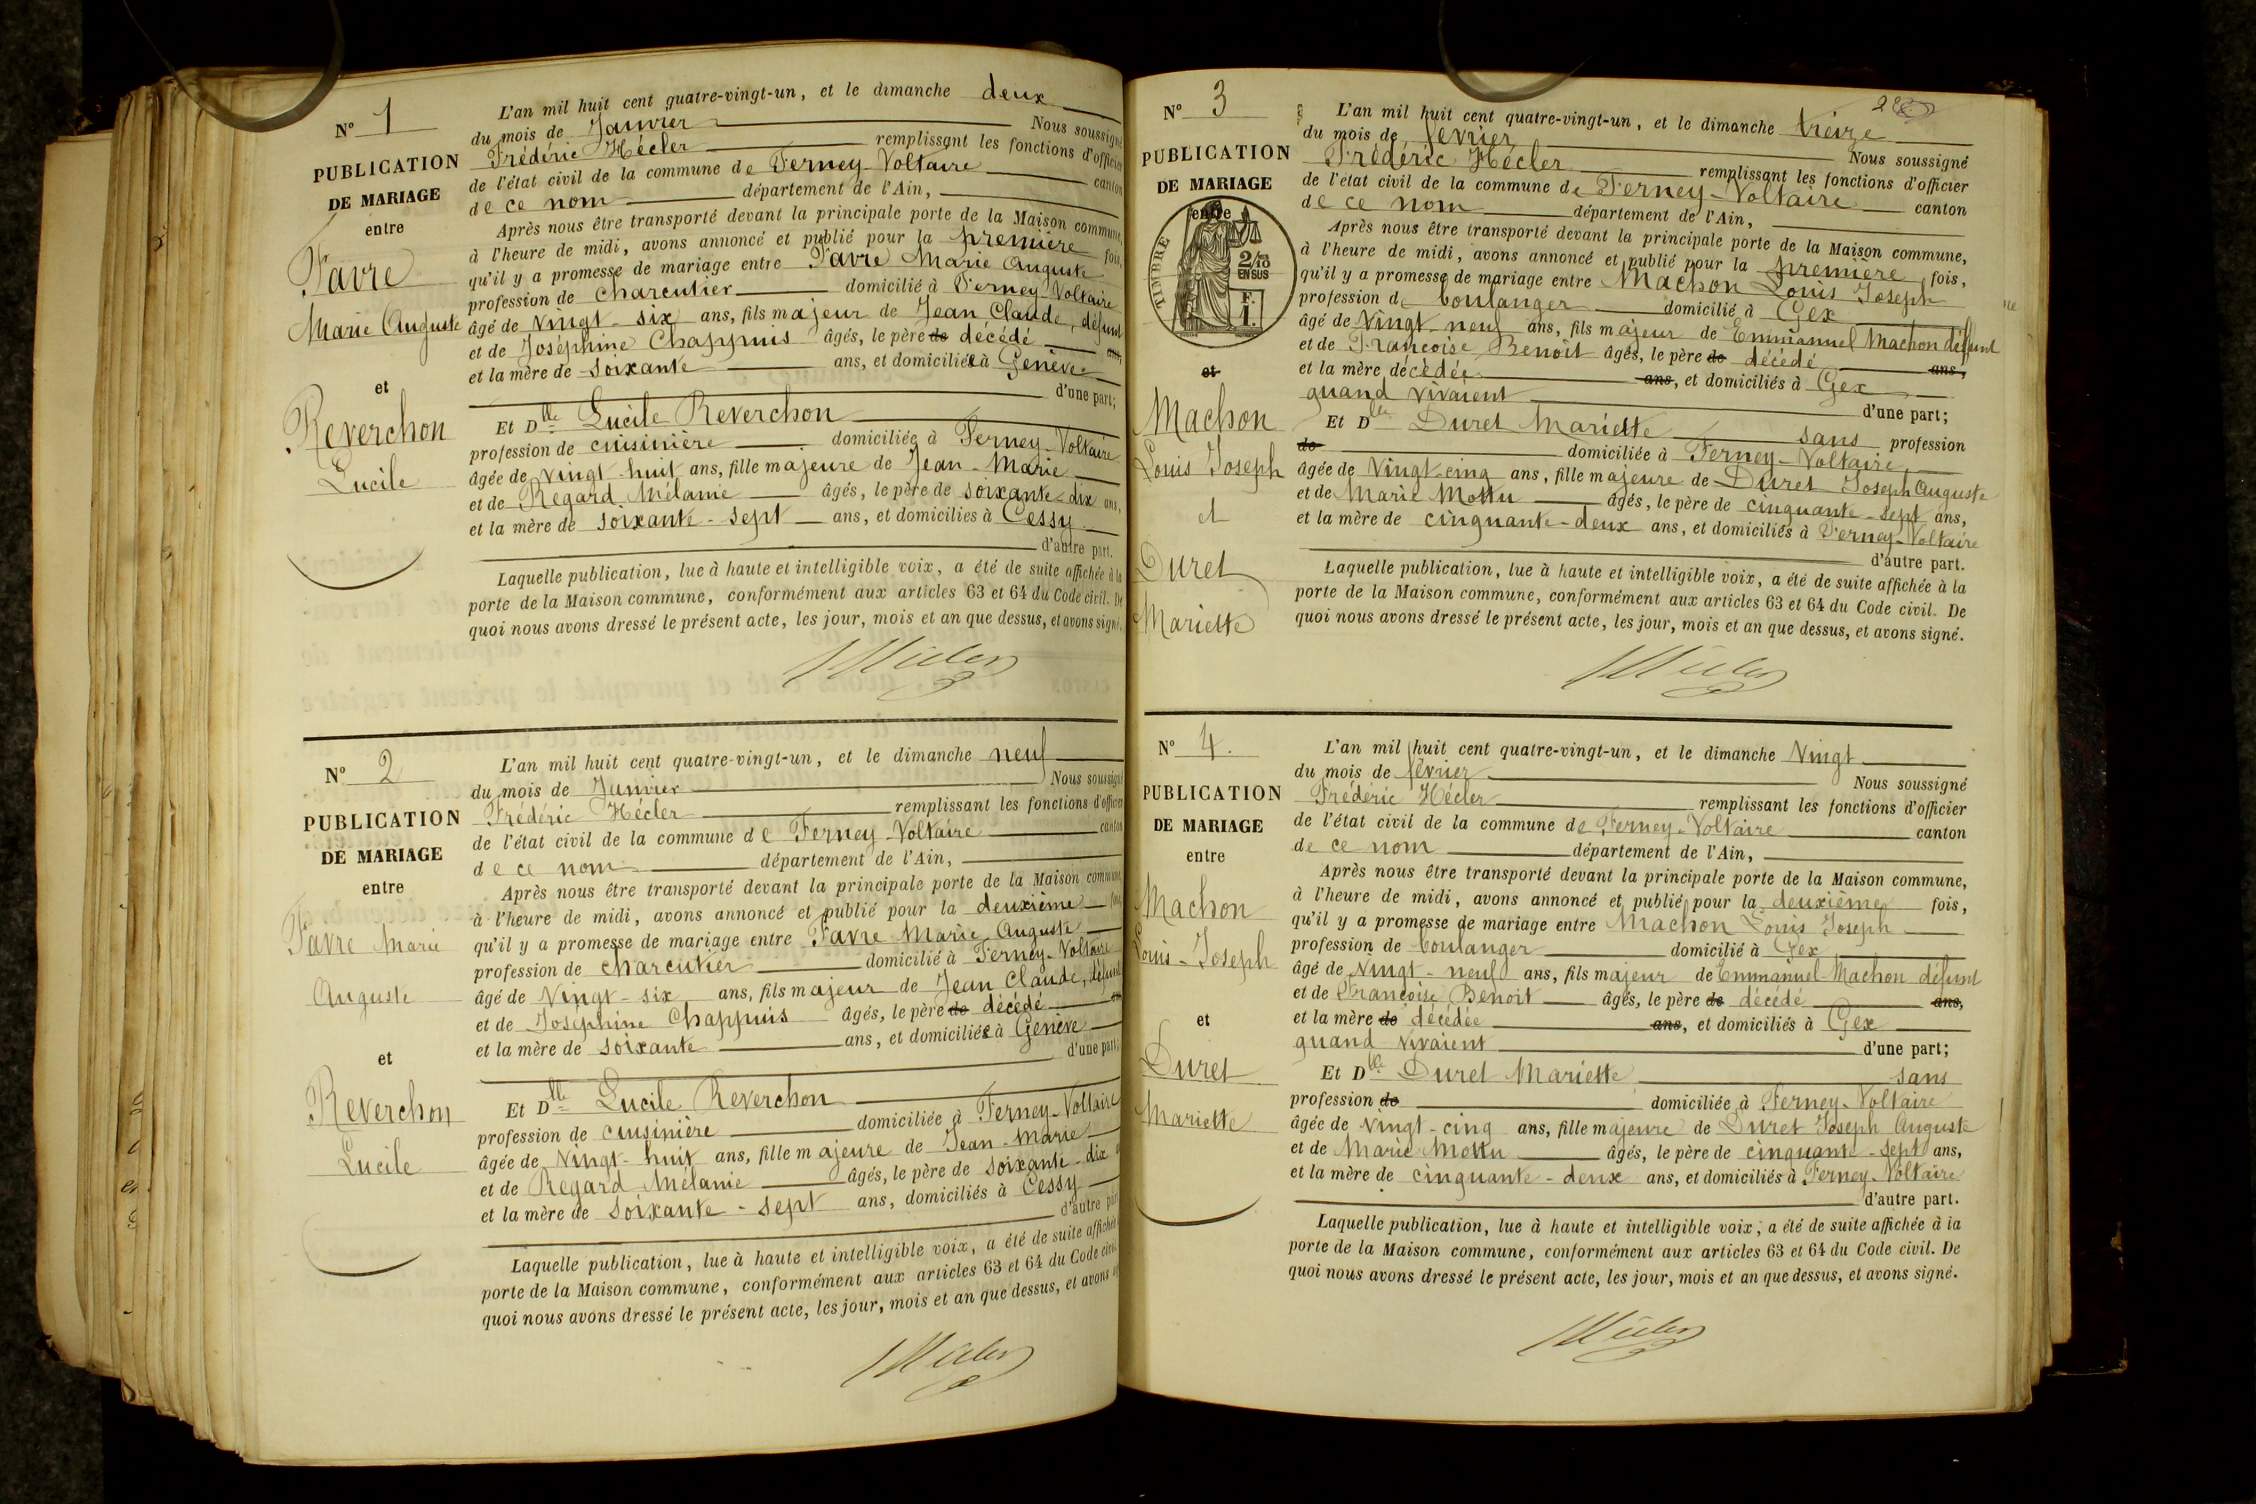 N° 1
PUBLICATION
DE MARIAGE
entre
Favre
Marie Auguste
et
Reverchon
Lucile
L'an mil huit cent quatre-vingt-un, et le dimanche deux
du mois de Janvier Nous soussigné
Frédéric Hécler remplissant les fonctions d'officier
de l'état civil de la commune de Ferney-Voltaire canton
de ce nom département de l'Ain,
Après nous être transporté devant la principale porte de la Maison commune,
à l'heure de midi, avons annoncé et publié pour la première fois,
qu'il y a promesse de mariage entre Favre Marie Auguste
profession de charcutier domicilié à Ferney-Voltaire
âgé de vingt-six ans, fils majeur de Jean Claude, défunt
et de Joséphine Chappuis âgés, le père de décédé ans,
et la mère de soixante ans, et domiciliée à Genève
d'une part;
Et Dlle Lucile Reverchon
profession de cuisinière domiciliée à Ferney-Voltaire
âgée de vingt-huit ans, fille majeure de Jean-Marie
et de Regard Mélanie âgés, le père de soixante-dix ans,
et la mère de soixante-sept ans, et domiciliés à Cessy
d'autre part.
Laquelle publication, lue à haute et intelligible voix, a été de suite affichée à la
porte de la Maison commune, conformément aux articles 63 et 64 du Code civil. De
quoi nous avons dressé le présent acte, les jour, mois et an que dessus, et avons signé.
Hécler
N° 2
PUBLICATION
DE MARIAGE
entre
Favre Marie
Auguste
et
Reverchon
Lucile
L'an mil huit cent quatre-vingt-un, et le dimanche neuf
du mois de Janvier Nous soussigné
Frédéric Hécler remplissant les fonctions d'officier
de l'état civil de la commune de Ferney-Voltaire canton
de ce nom département de l'Ain,
Après nous être transporté devant la principale porte de la Maison commune,
à l'heure de midi, avons annoncé et publié pour la deuxième fois,
qu'il y a promesse de mariage entre Favre Marie Auguste
profession de charcutier domicilié à Ferney-Voltaire
âgé de vingt-six ans, fils majeur de Jean Claude, défunt
et de Joséphine Chappuis âgés, le père de décédé ans
et la mère de soixante ans, et domiciliée à Genève
d'une part;
Et Dlle Lucile Reverchon
profession de cuisinière domiciliée à Ferney-Voltaire
âgée de vingt-huit ans, fille majeure de Jean-Marie
et de Regard Mélanie âgés, le père de soixante-dix
et la mère de soixante-sept ans, domiciliés à Cessy
d'autre part
Laquelle publication, lue à haute et intelligible voix, a été de suite affichée
porte de la Maison commune, conformément aux articles 63 et 64 du Code civil
quoi nous avons dressé le présent acte, les jour, mois et an que dessus, et avons
Hécler
N° 3
PUBLICATION
DE MARIAGE
entre
TIMBRE
2/10
EN SUS
F.
1.
et
Machon
Louis Joseph
et
Duret
Mariette
L'an mil huit cent quatre-vingt-un, et le dimanche treize
du mois de février Nous soussigné
Frédéric Hécler remplissant les fonctions d'officier
de l'état civil de la commune de Ferney-Voltaire canton
de ce nom département de l'Ain,
Après nous être transporté devant la principale porte de la Maison commune,
à l'heure de midi, avons annoncé et publié pour la première fois,
qu'il y a promesse de mariage entre Machon Louis Joseph
profession de boulanger domicilié à Gex
âgé de vingt-neuf ans, fils majeur de Emmanuel Machon défunt
et de Françoise Benoit âgés, le père de décédé ans,
et la mère décédée ans, et domiciliés à Gex
quand vivaient d'une part;
Et Dlle Duret Mariette sans profession
de domiciliée à Ferney-Voltaire
âgée de vingt-cinq ans, fille majeure de Duret Joseph Auguste
et de Marie Mottu âgés, le père de cinquante-sept ans,
et la mère de cinquante-deux ans, et domiciliés à Ferney-Voltaire
d'autre part.
Laquelle publication, lue à haute et intelligible voix, a été de suite affichée à la
porte de la Maison commune, conformément aux articles 63 et 64 du Code civil. De
quoi nous avons dressé le présent acte, les jour, mois et an que dessus, et avons signé.
Hécler
N° 4.
PUBLICATION
DE MARIAGE
entre
Machon
Louis-Joseph
et
Duret
Mariette
L'an mil huit cent quatre-vingt-un, et le dimanche vingt
du mois de février Nous soussigné
Frédéric Hécler remplissant les fonctions d'officier
de l'état civil de la commune de Ferney-Voltaire canton
de ce nom département de l'Ain,
Après nous être transporté devant la principale porte de la Maison commune,
à l'heure de midi, avons annoncé et publié pour la deuxième fois,
qu'il y a promesse de mariage entre Machon Louis Joseph
profession de boulanger domicilié à Gex
âgé de vingt-neuf ans, fils majeur de Emmanuel Machon défunt
et de Françoise Benoit âgés, le père de décédé ans,
et la mère de décédée ans, et domiciliés à Gex
quand vivaient d'une part;
Et Dlle Duret Mariette sans
profession de domiciliée à Ferney-Voltaire
âgée de vingt-cinq ans, fille majeure de Duret Joseph Auguste
et de Marie Mottu âgés, le père de cinquante-sept ans,
et la mère de cinquante-deux ans, et domiciliés à Ferney-Voltaire
d'autre part.
Laquelle publication, lue à haute et intelligible voix, a été de suite affichée à la
porte de la Maison commune, conformément aux articles 63 et 64 du Code civil. De
quoi nous avons dressé le présent acte, les jour, mois et an que dessus, et avons signé.
Hécler